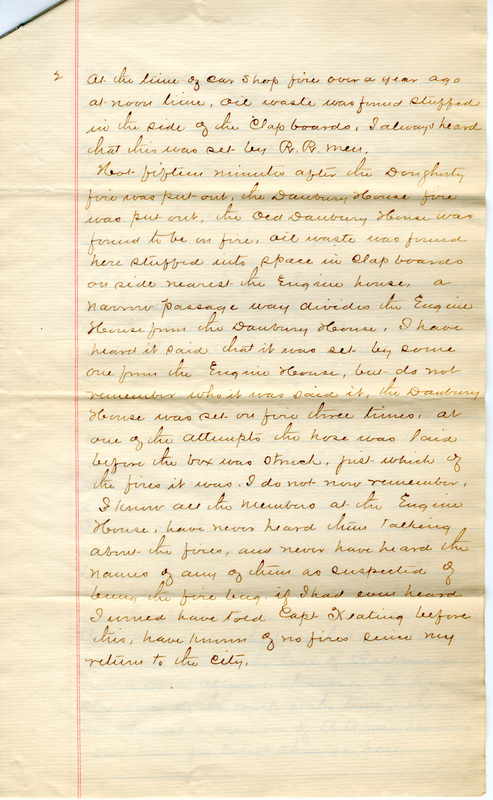 2 At the time of car shop fire over a year ago
at noon time, oil waste was found stuffed
in the side of the Clap boards, I always heard
that this was set by R. R. men.
Not fifteen minutes after the Dougherty
fire was put out, the Danbury House fire
was put out, the Old Danbury House was
found to be on fire, oil waste was found
here stuffed into space in Clap boards
on side nearest the Engine house, a
narrow passage way divides the Engine
House from the Danbury House, I have
heard it said that it was set by some
one from the Engine House, but do not
remember who it was said it, the Danbury
House was set on fire three times, at
one of the attempts the hose was laid
before the box was struck, just which of
the fires it was I do not now remember,
I know all the members at the Engine
House, have never heard them talking
about the fires, and never have heard the
names of any of them as suspected of
being the fire bug. if I had ever heard
I would have told Capt Keating before
this, have known of no fires since my
return to the city.